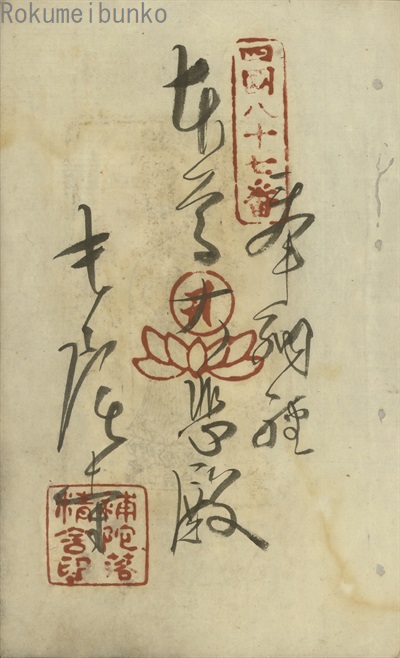 Rokumeibunko
四國八十七番
奉納経
本尊大悲殿
長尾寺
補陀落
精舎印